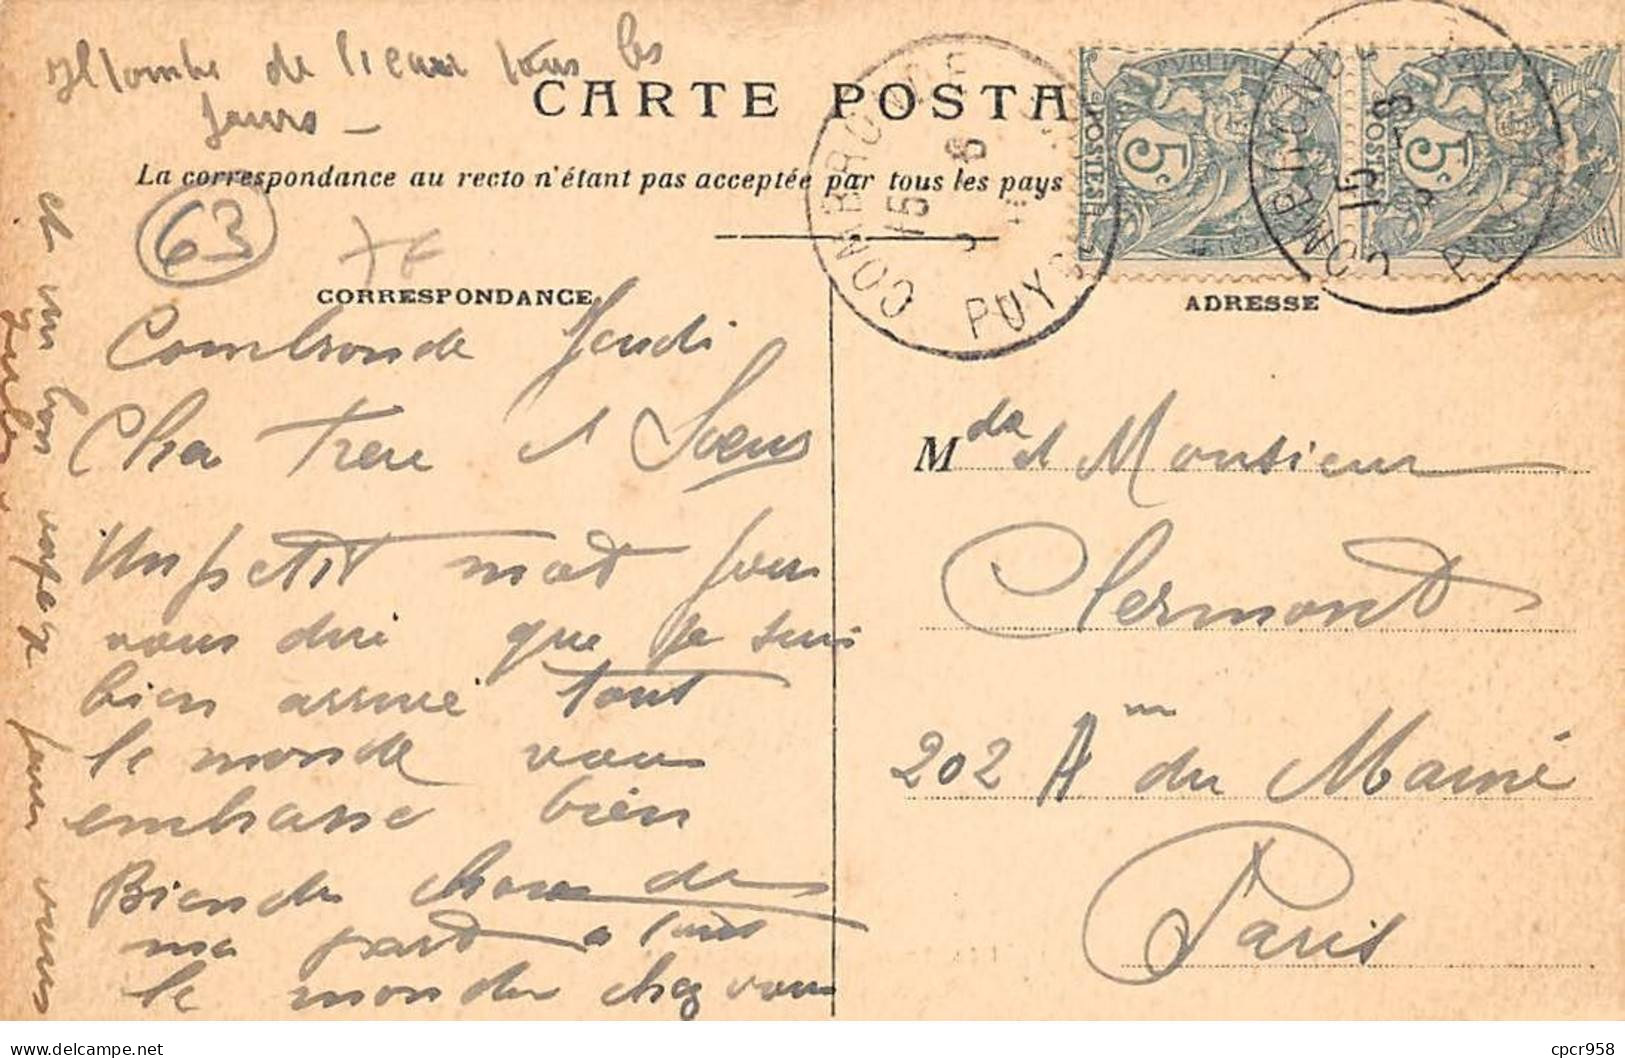 Il tombe de l'eau tous les
jours –
CARTE POSTA
La correspondance au recto n'étant pas acceptée par tous les pays
63
COMBRONDE
15
8
PUY-D
POSTES
5c
POSTES
5c
COMBRONDE
15
PUY-DE
CORRESPONDANCE
ADRESSE
Combronde Jeudi
Cher Frere et Soeur
Un petit mot pour
vous dire que je suis
bien arrivé tout
le monde vous
embrasse bien
Bien des choses de
ma part a tout
le monde chez vous
et un bon
pour vous
Mda et Monsieur
Clermont
202 Anu du Maine
Paris
delcampe.net
cpcr958